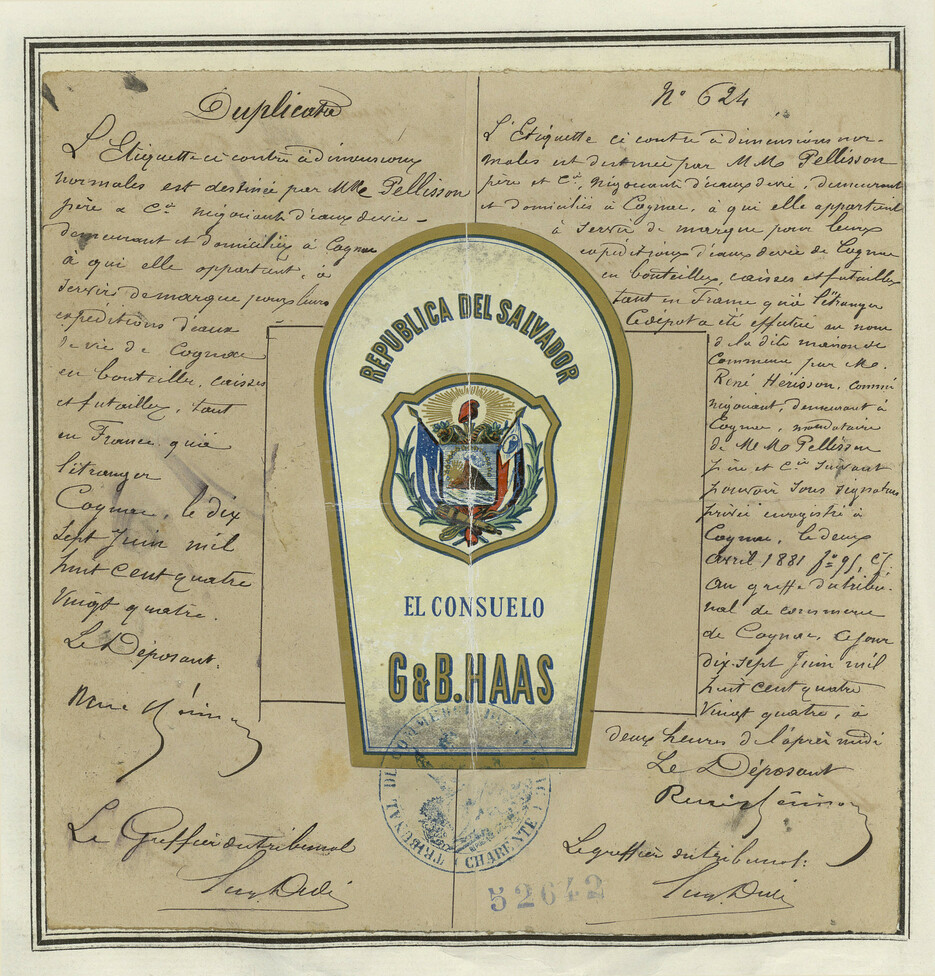 Duplicata
L'Etiquette ci contre à dimensions
normales est destinée par MMc Pellisson
père & Cie négociants d'eaux de vie -
demeurant et domiciliés à Cognac
à qui elle appartient, à
servir de marque pour leurs
expéditions d'eaux
de vie de Cognac
en bouteilles, caisses
et futailles, tant
en France qu'à
l'étranger
Cognac, le dix
sept Juin mil
huit cent quatre
vingt quatre.
Le Déposant.
René Hérisson
Le Greffier du tribunal
N° 624
L'Etiquette ci contre à dimensions nor-
males est destinée par M Mc Pellisson
père et Cie, négociants d'eaux de vie, demeurant
et domiciliés à Cognac, à qui elle appartient
à servir de marque pour leurs
expéditions d'eaux de vie de Cognac
en bouteilles, caisses et futailles
tant en France qu'à l'étranger
Ce dépôt a été effectué au nom
de la dite maison de
Commerce par Mr.
René Hérisson, commis
négociant, demeurant à
Cognac, mandataire
de M Mc Pellisson
père et Cie suivant
pouvoir sous signature
privée enregistré à
Cognac, le deux
avril 1881
au greffe du tribu-
nal de commerce
de Cognac, ce jour
dix-sept Juin mil
huit cent quatre
vingt quatre, à
deux heures de l'après midi
Le Déposant
René Hérisson
Le greffier du tribunal:
REPUBLICA DEL SALVADOR
EL CONSUELO
G & B. HAAS
TRIBUNAL DE COMMERCE
CHARENTE
52642